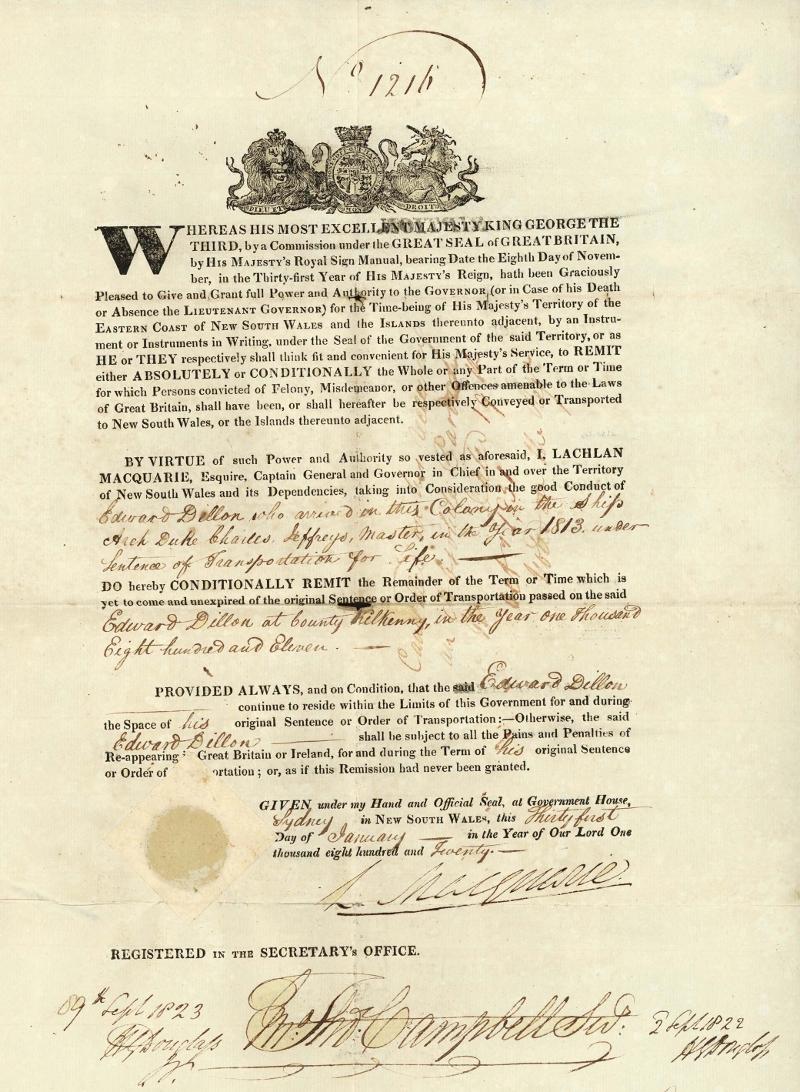 No 1216
DIEU ET MON DROIT
WHEREAS HIS MOST EXCELLENT MAJESTY KING GEORGE THE
THIRD, by a Commission under the GREAT SEAL of GREAT BRITAIN,
by HIS MAJESTY's Royal Sign Manual, bearing Date the Eighth Day of Novem-
ber, in the Thirty-first Year of HIS MAJESTY's Reign, hath been Graciously
Pleased to Give and Grant full Power and Authority to the GOVERNOR (or in Case of his Death
or Absence the LIEUTENANT GOVERNOR) for the Time-being of His Majesty's Territory of the
EASTERN COAST of NEW SOUTH WALES and the ISLANDS thereunto adjacent, by an Instru-
ment or Instruments in Writing, under the Seal of the Government of the said Territory, or as
HE or THEY respectively shall think fit and convenient for His Majesty's Service, to REMIT
either ABSOLUTELY or CONDITIONALLY the Whole or any Part of the Term or Time
for which Persons convicted of Felony, Misdemeanor, or other Offences amenable to the Laws
of Great Britain, shall have been, or shall hereafter be respectively Conveyed or Transported
to New South Wales, or the Islands thereunto adjacent.
BY VIRTUE of such Power and Authority so vested as aforesaid, I, LACHLAN
MACQUARIE, Esquire, Captain General and Governor in Chief in and over the Territory
of New South Wales and its Dependencies, taking into Consideration the good Conduct of
Edward Dillon who arrived in this Colony in the Ship
Arch Duke Charles, Jeffreys, Master, in the Year 1813. under
Sentence of Transportation for Life. —
DO hereby CONDITIONALLY REMIT the Remainder of the Term or Time which is
yet to come and unexpired of the original Sentence or Order of Transportation passed on the said
Edward Dillon at County Kilkenny, in the Year one Thousand
Eight hundred and Eleven. —
PROVIDED ALWAYS, and on Condition, that the said Edward Dillon
continue to reside within the Limits of this Government for and during
the Space of his original Sentence or Order of Transportation:—Otherwise, the said
Edward Dillon — shall be subject to all the Pains and Penalties of
Re-appearing Great Britain or Ireland, for and during the Term of his original Sentence
or Order of portation; or, as if this Remission had never been granted.
GIVEN under my Hand and Official Seal, at Government House,
Sydney in NEW SOUTH WALES, this Thirty first
Day of January — in the Year of Our Lord One
thousand eight hundred and Twenty. —
L Macquarie.
REGISTERED IN THE SECRETARY's OFFICE.
Jno. Thos. Campbell Secy.
9th Sept 1823
H G Douglass
2 Sept 1822
H G Douglass